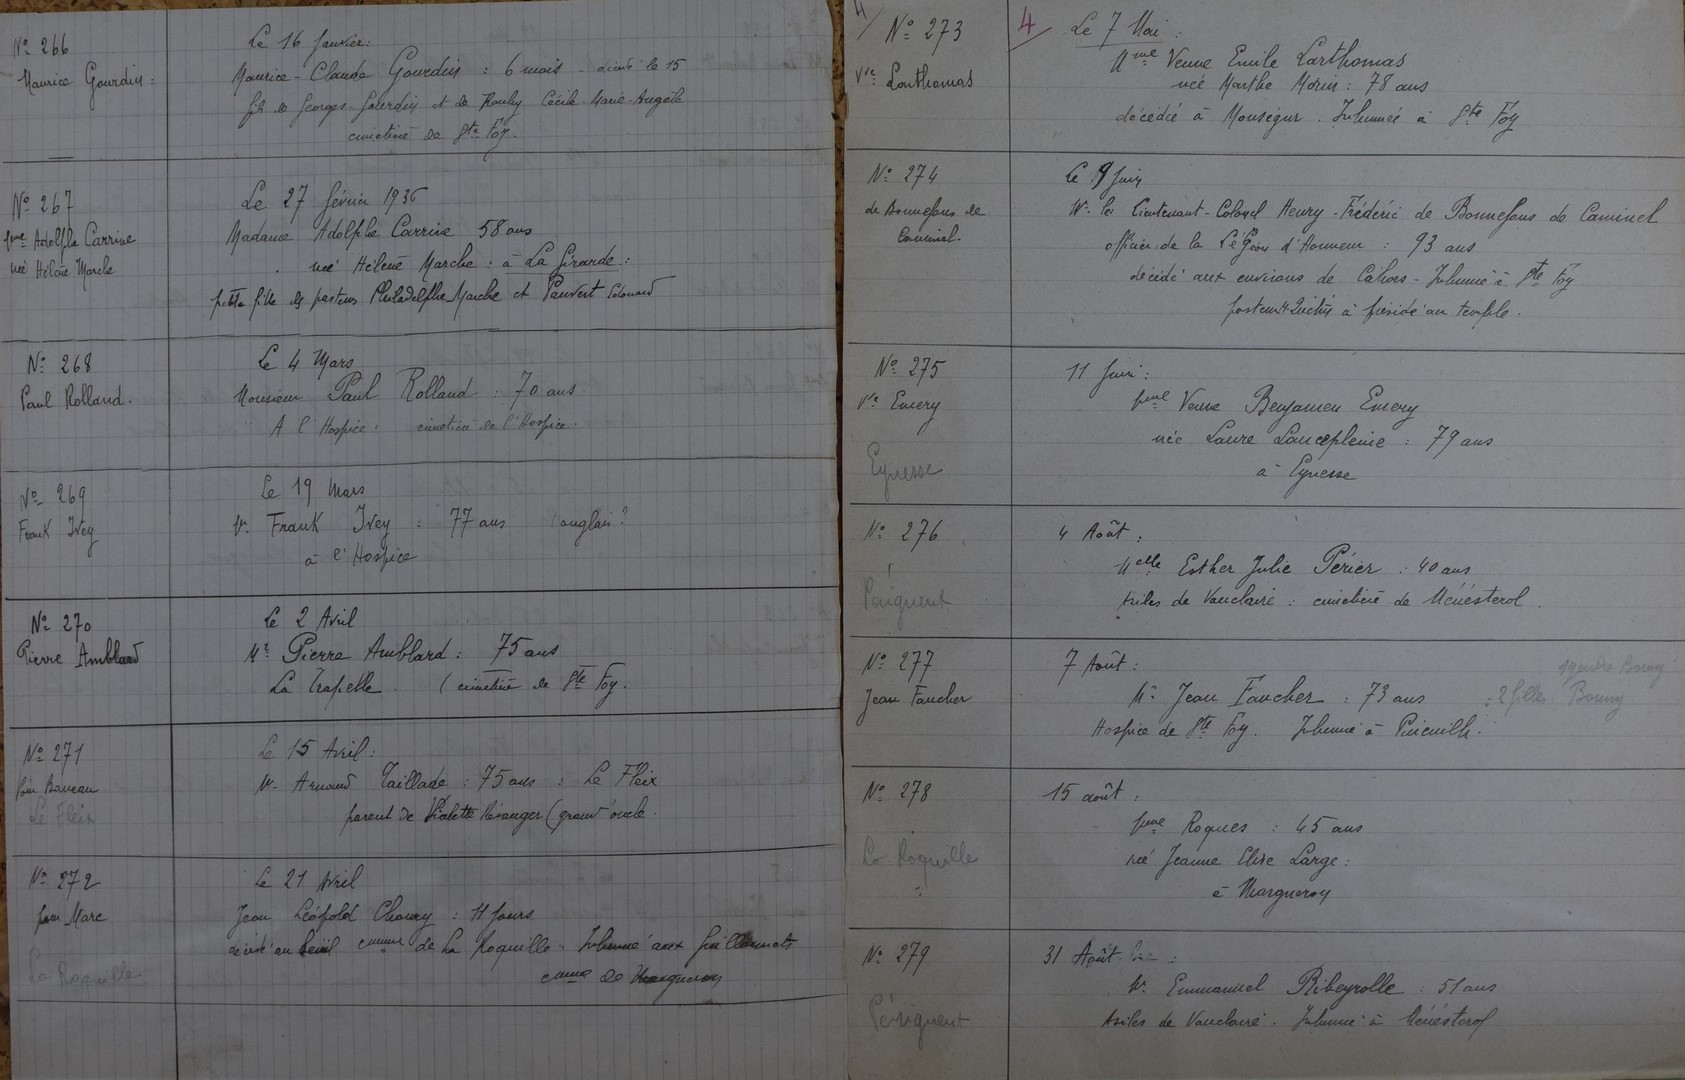 N° 266
Maurice Gourdin :
Le 16 Janvier :
Maurice - Claude Gourdin : 6 mois - décédé le 15
fils de Georges Gourdin et de Rouby Cécile Marie Angèle
cimetière de Ste Foy.
N° 267
Mme Adolphe Carrive
née Hélène Marche
Le 27 février 1936
Madame Adolphe Carrive 58 ans
née Hélène Marche : à La Girarde :
petite fille des pasteurs Philadelphe Marche et Pauvert Edouard
N° 268
Paul Rolland.
Le 4 Mars
Monsieur Paul Rolland : 70 ans
A l'Hospice : cimetière de l'Hospice.
N° 269
Frank Ivey
Le 19 Mars
Mr. Frank Ivey : 77 ans anglais ?
à l'Hospice
N° 270
Pierre Amblard
Le 2 Avril
Mr Pierre Amblard : 75 ans
La Trapelle ( cimetière de Ste Foy.
N° 271
Le Fleix
Le 15 Avril :
Mr. Arnaud Taillade : 75 ans : Le Fleix
parent de Violette (grand'oncle.
N° 272
Marc
La Roquille
Le 21 Avril
Jean Léopold Choury : 11 jours
décédé au cmune de La Roquille. Inhumé aux Guillonnets
cmune de Margueron
4/
N° 273
Vve Larthomas
4/
Le 7 Mai :
Mme Veuve Emile Larthomas
née Marthe Morin : 78 ans
décédée à Monségur. Inhumée à Ste Foy
N° 274
de Bonnefous de
Caminel.
Le 9 Juin
Mr. le Lieutenant-Colonel Henry-Frédéric de Bonnefous de Caminel
officier de la Légion d'Honneur : 93 ans
décédé aux environs de Cahors - Inhumé à Ste Foy
pasteur à présidé au temple.
N° 275
Ve Emery
Eynesse
11 Juin :
Mme Veuve Benjamen Emery
née Laure Lanceplenie : 79 ans
à Eynesse
N° 276
4 Août :
Melle Esther Julie Périer : 40 ans
Asiles de Vauclaire : cimetière de Ménesterol.
N° 277
Jean Faucher
7 Août :
Mr Jean Faucher : 73 ans
: 2 filles Bonny
Hospice de Ste Foy. Inhumé à Pineuilh.
N° 278
La Roquille
15 août :
Mme Roques : 45 ans
née Jeanne Elise Large :
à Margueron
N° 279
31 Août :
Mr. Emmanuel Ribeyrolle : 51 ans
Asiles de Vauclaire. Inhumé à Ménesterol